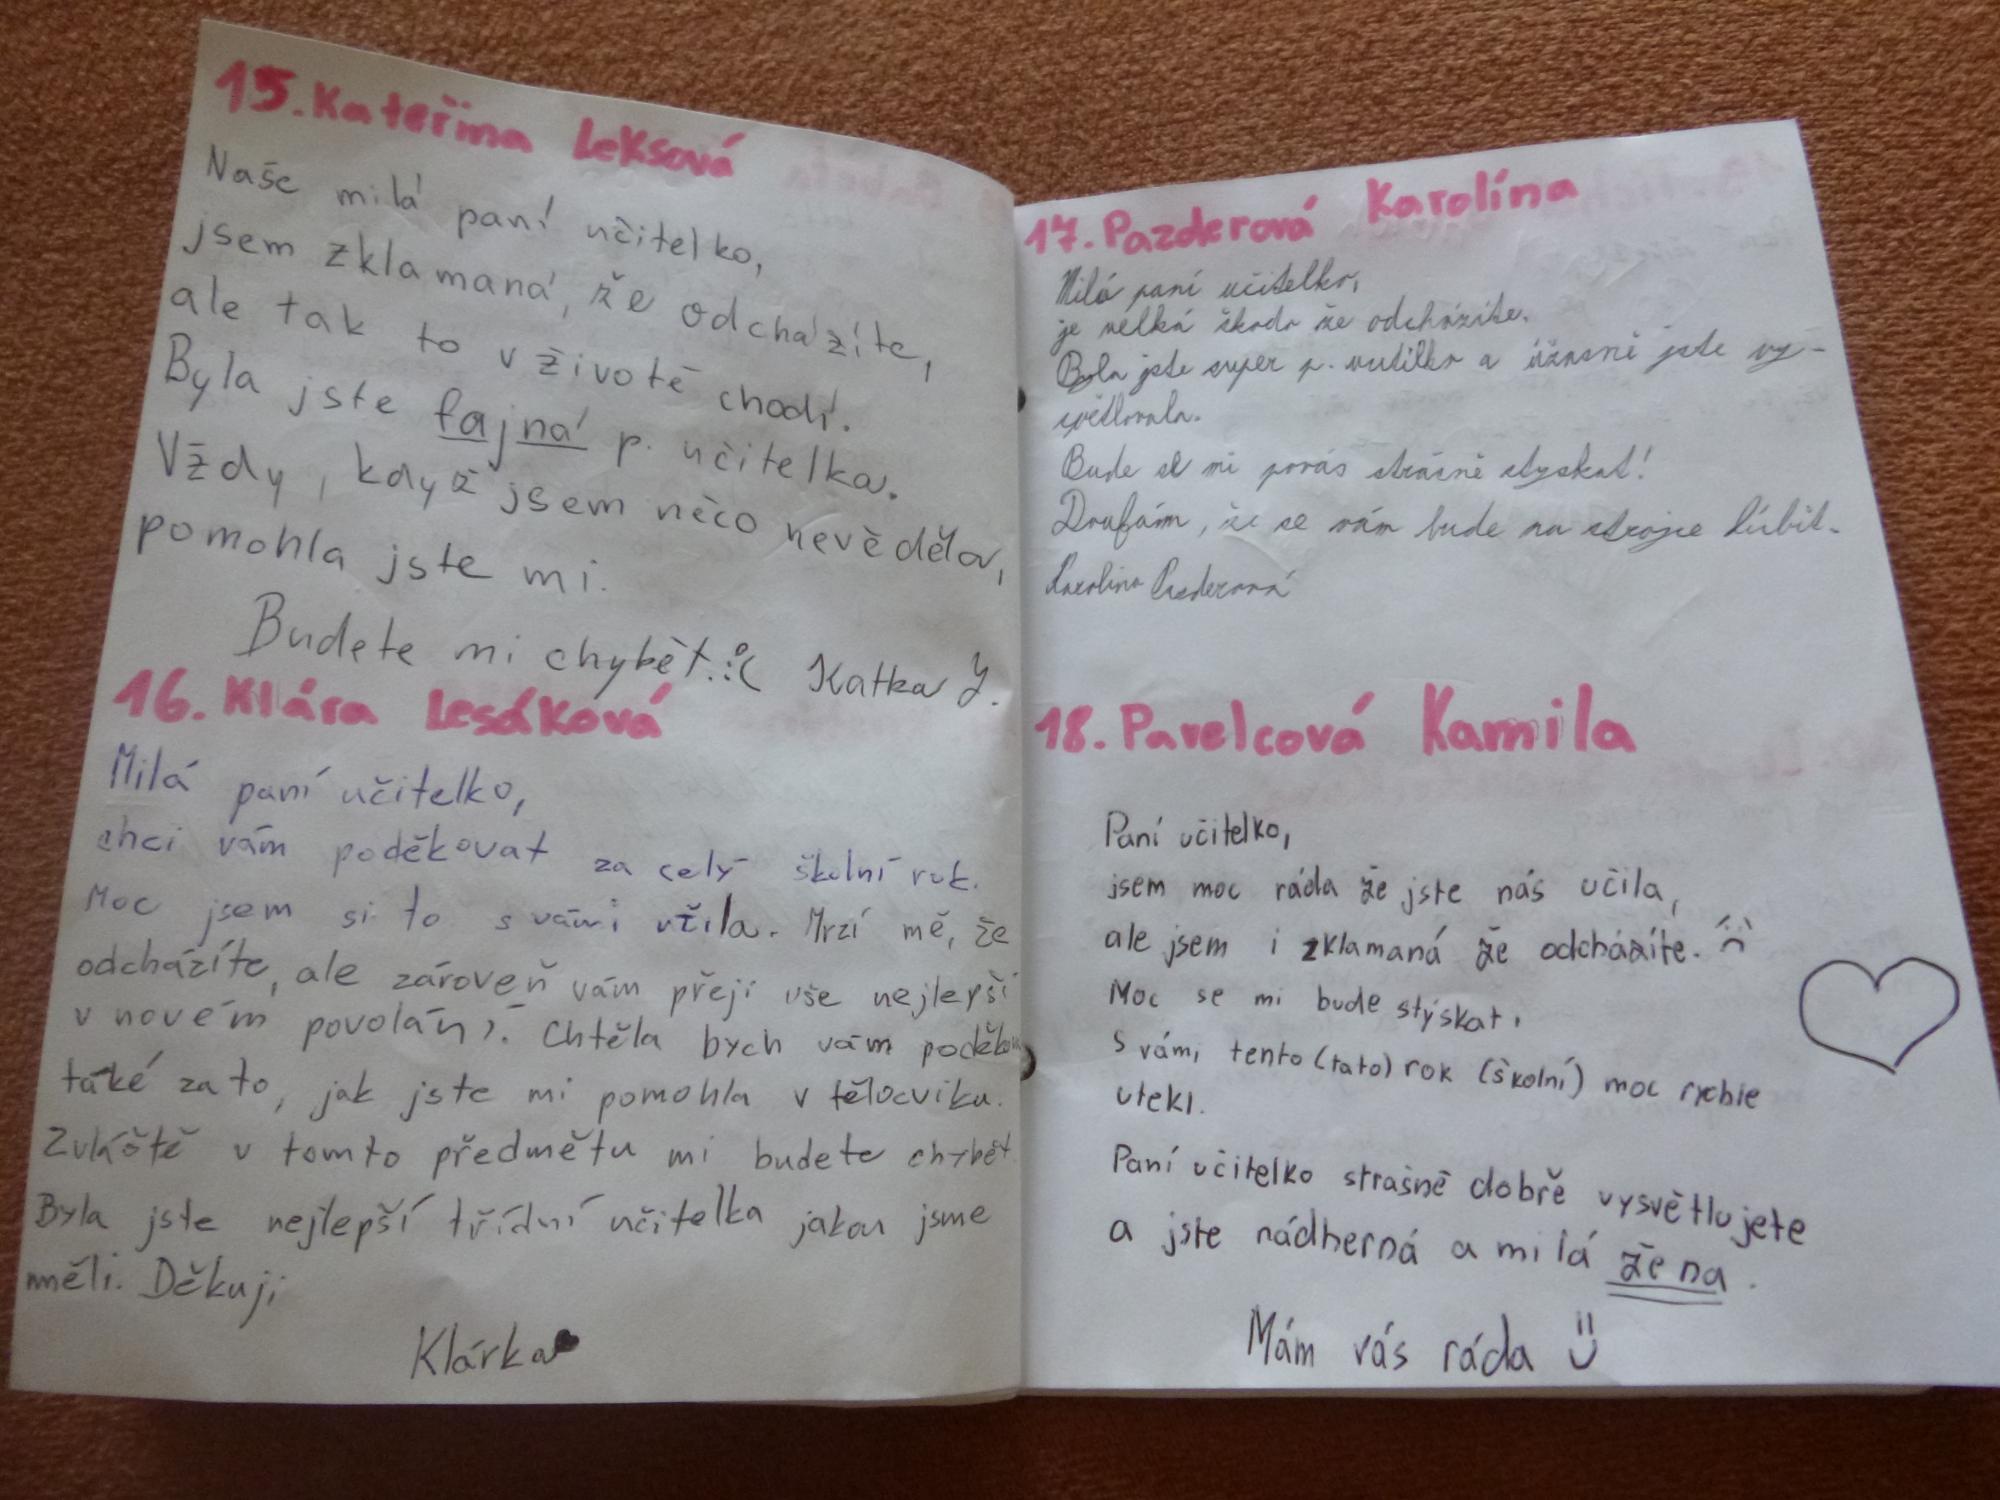 15. Kateřina Leksová
Naše milá paní učitelko,
jsem zklamaná, že odcházíte,
ale tak to v životě chodí.
Byla jste fajná p. učitelka.
Vždy, když jsem něco nevěděla,
pomohla jste mi.
Budete mi chybět.:( Katka
16. Klára Lesáková
Milá paní učitelko,
chci vám poděkovat za celý školní rok.
Moc jsem si to s vámi užila. Mrzí mě, že
odcházíte, ale zároveň vám přeji vše nejlepší
v novém povolání. Chtěla bych vám poděkov
také za to, jak jste mi pomohla v tělocviku.
Zvláště v tomto předmětu mi budete chybět.
Byla jste nejlepší třídní učitelka jakou jsme
měli. Děkuji
Klárka
17. Pazderová Karolína
Milá paní učitelko,
je velká škoda že odcházíte.
Byla jste super p. a úžasně jste vy-
světlovala.
Bude se mi strašně styskat!
Doufám, že se vám bude na líbit.
Karolína Pazderová
18. Pavelcová Kamila
Paní učitelko,
jsem moc ráda že jste nás učila,
ale jsem i zklamaná že odcházíte.
Moc se mi bude stýskat.
S vámi tento (tato) rok (školní) moc rychle
utekl.
Paní učitelko strašně dobře vysvětlujete
a jste nádherná a milá žena.
Mám vás ráda